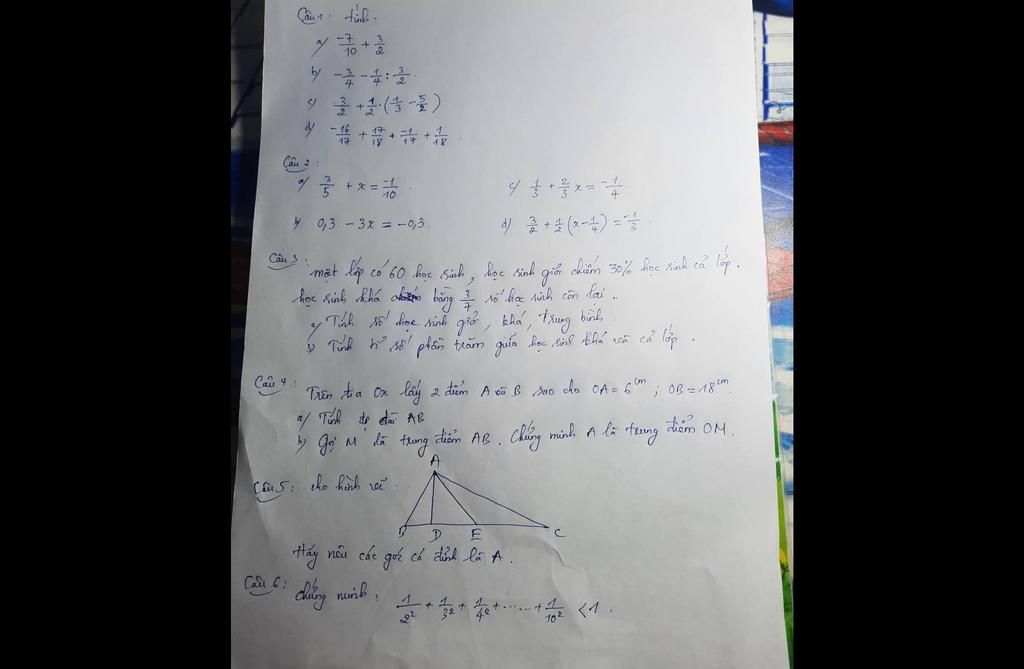 Câu 1: Tính:
a/ \frac{-7}{10} + \frac{3}{2}
b/ -\frac{3}{4} - \frac{1}{4} : \frac{3}{2}.
c/ \frac{3}{2} + \frac{1}{2} \cdot (\frac{1}{3} - \frac{5}{2})
d/ \frac{-16}{17} + \frac{17}{18} + \frac{-1}{17} + \frac{1}{18}.
Câu 2:
a/ \frac{3}{5} + x = \frac{-1}{10}. c/ \frac{1}{3} + \frac{2}{3}x = \frac{-1}{4}.
b/ 0,3 - 3x = -0,3. d/ \frac{3}{2} + \frac{1}{2}(x - \frac{1}{4}) = \frac{-1}{3}.
Câu 3:
một lớp có 60 học sinh, học sinh giỏi chiếm 30% học sinh cả lớp.
học sinh khá bằng \frac{3}{7} số học sinh còn lại..
a/ Tính số học sinh giỏi, khá, Trung bình.
b) Tính tỉ số phần trăm giữa học sinh khá và cả lớp.
Câu 4:
Trên tia Ox lấy 2 điểm A và B sao cho OA = 6 cm; OB = 18 cm.
a/ Tính độ dài AB
b) Gọi M là trung điểm AB. Chứng minh A là trung điểm OM.
Câu 5: cho hình vẽ.
A
B D E C
Hãy nêu các góc có đỉnh là A.
Câu 6:
chứng minh: \frac{1}{2^2} + \frac{1}{3^2} + \frac{1}{4^2} + ...... + \frac{1}{10^2} < 1.